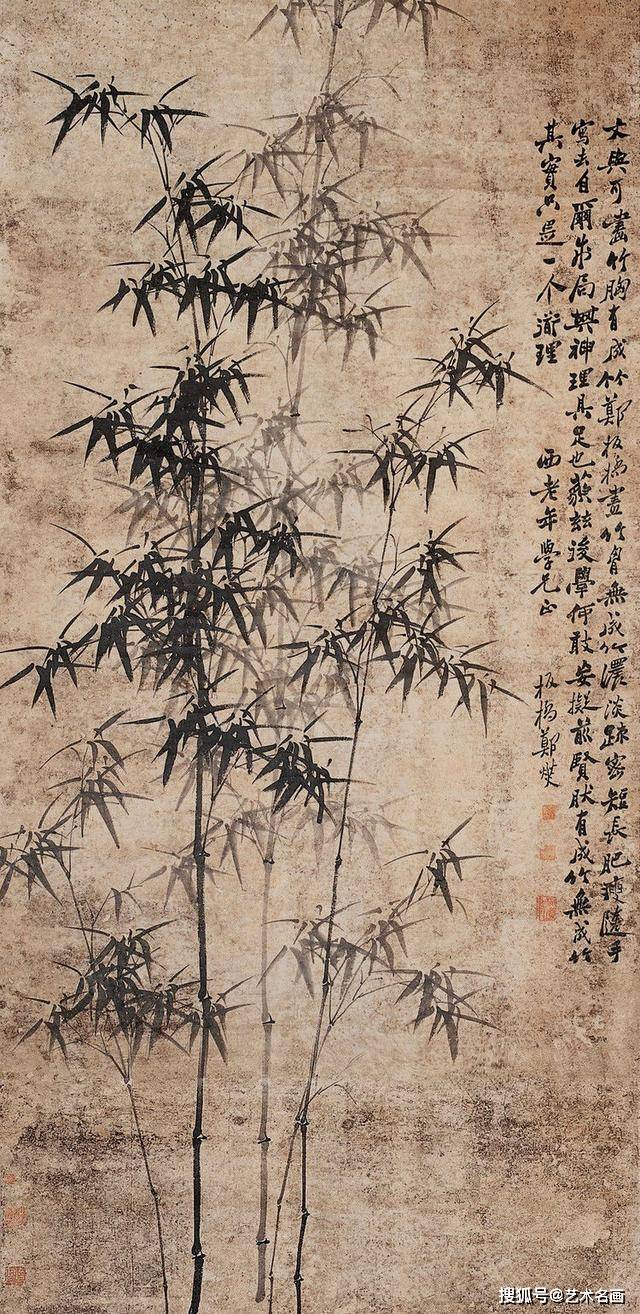 文與可畫竹胸有成竹鄭板橋畫竹胷無成竹濃淡疎密短長肥瘦隨手
寫去自爾成局其神理具足也藐茲後學何敢妄擬前賢然有成竹無成竹
其實只是一个道理 酉老年學兄正 板橋鄭燮
搜狐号@艺术名画